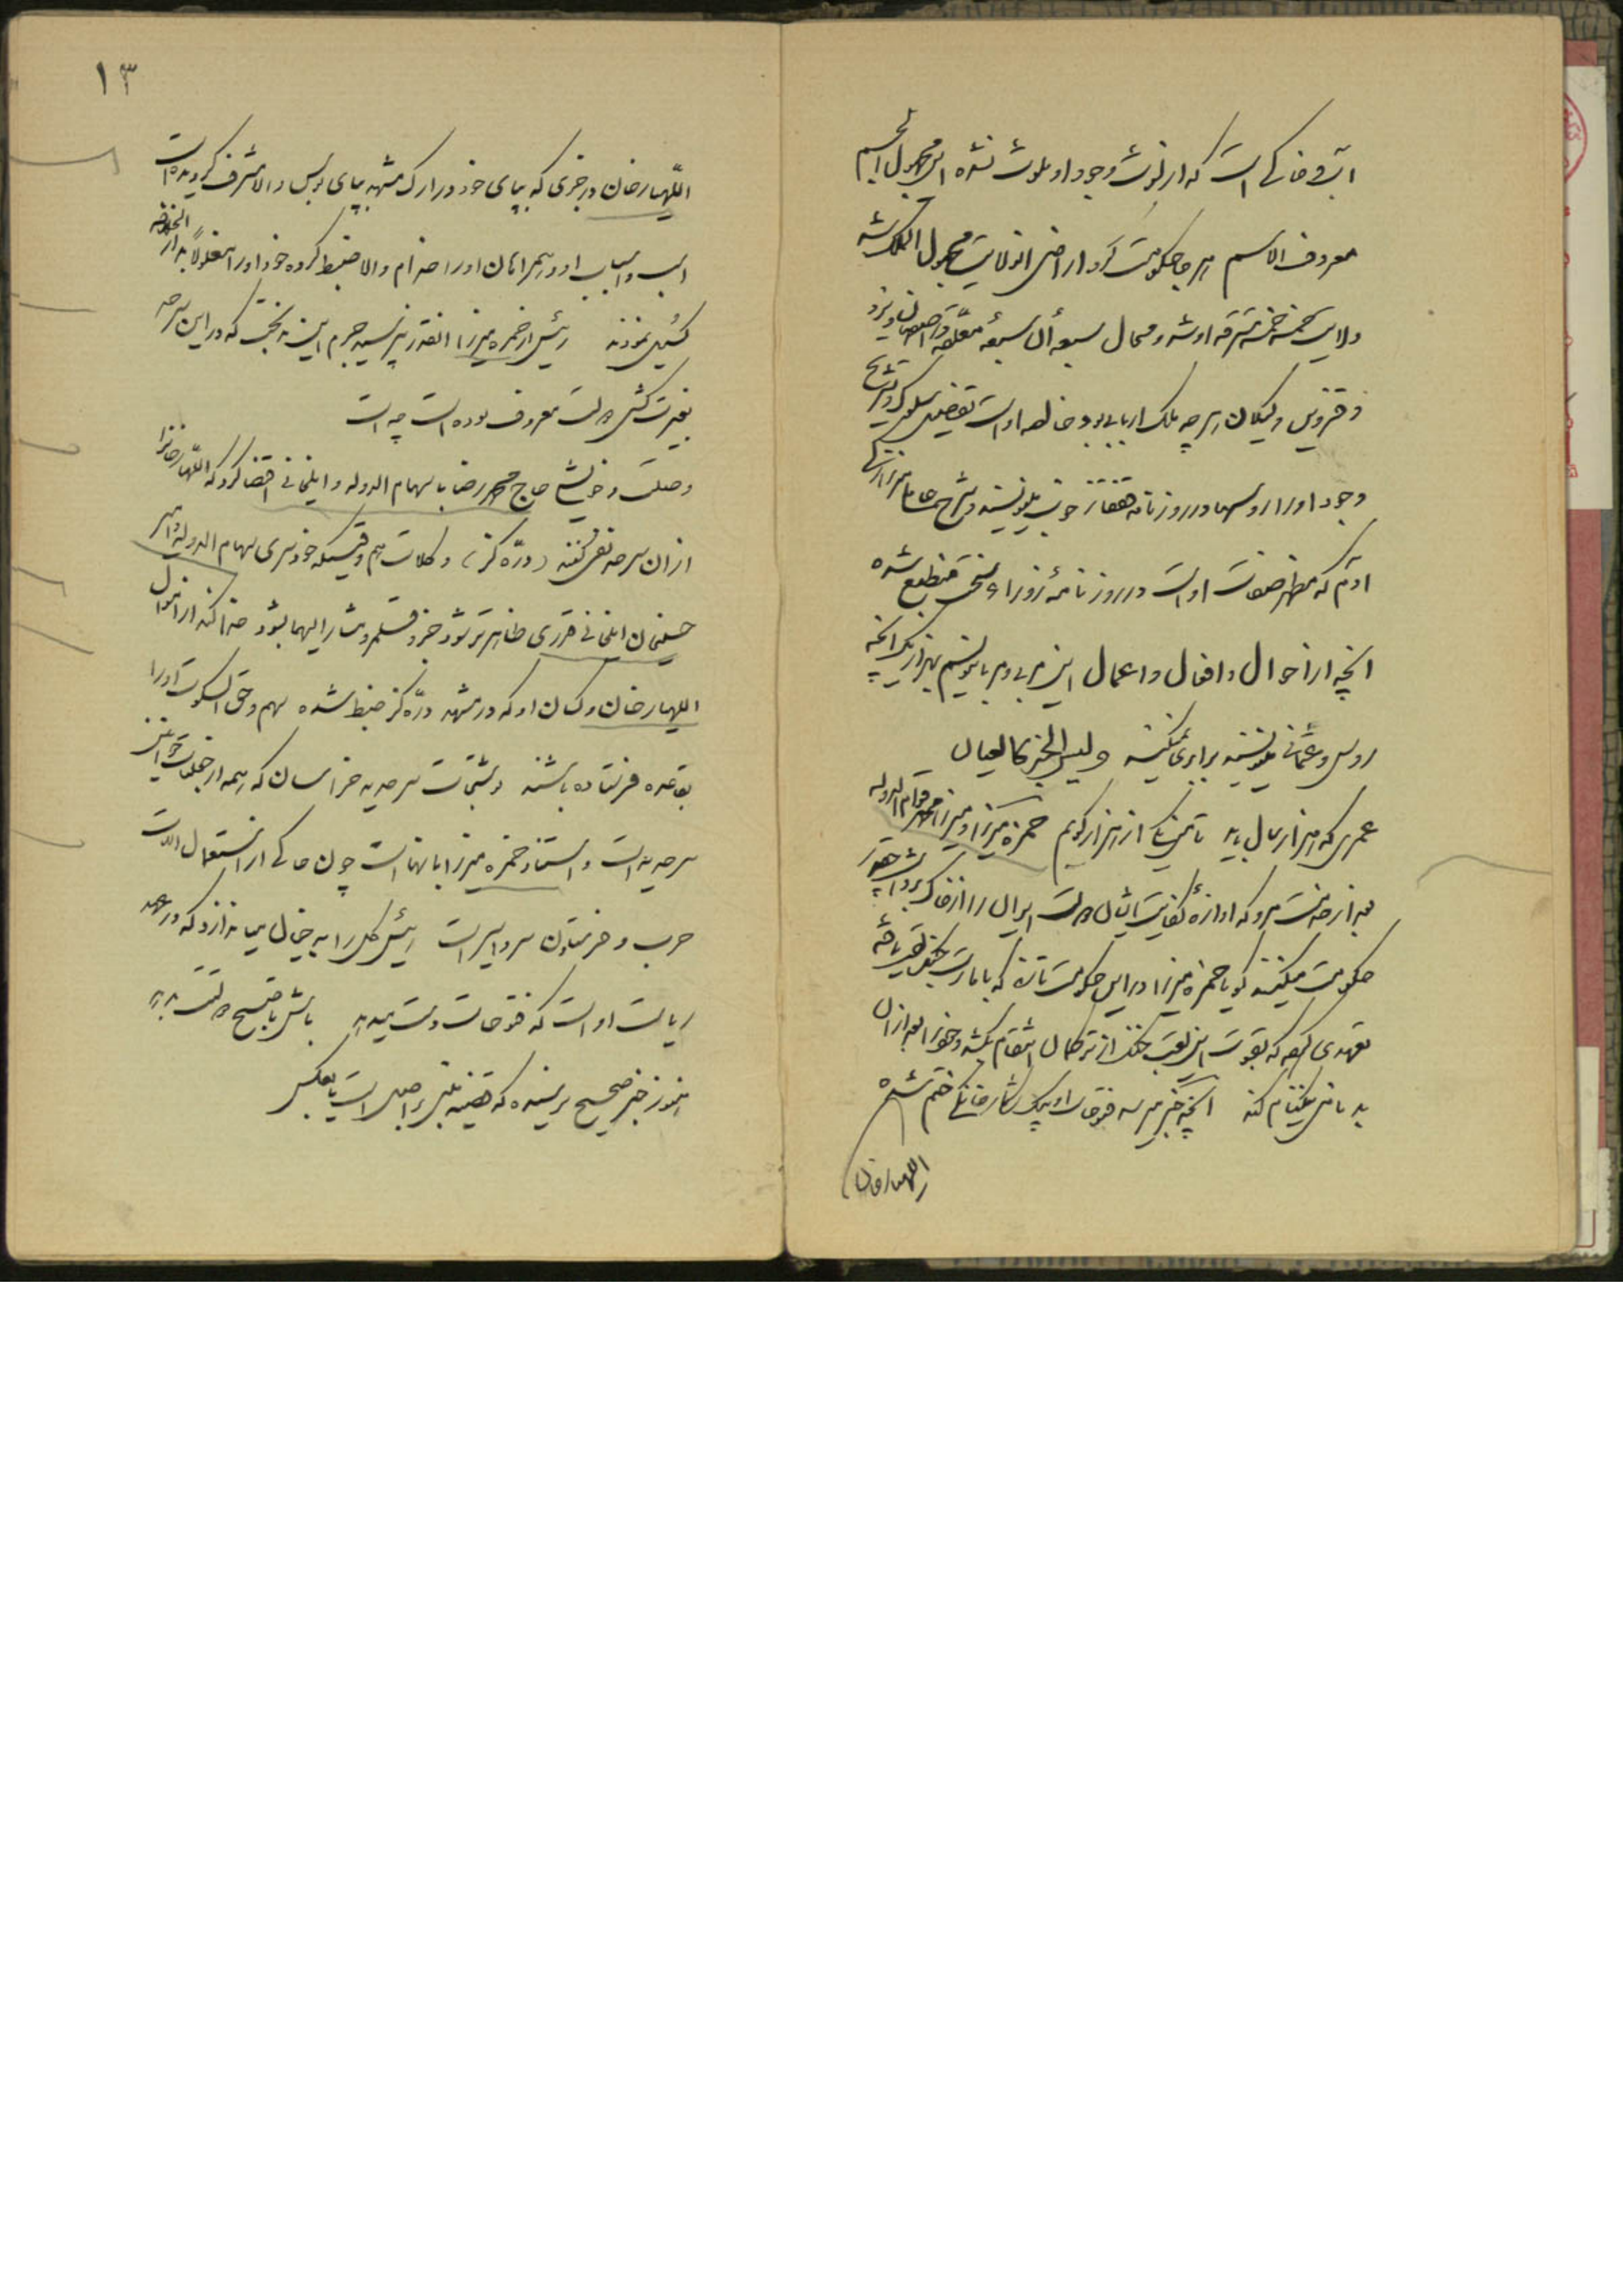 آب و خاکی است که از لوث وجود او ملوث نشده این مجهول الجسم
معروف الاسم هر جا حکومت کرد اراضی انولایت مجهول المالک شد
ولایت خمسه خمسه مسترقه او شد و محال سبعه آن سبعه معلقه و اصفهان و یزد
و قزوین و گیلان هر چه ملک اربابی بود خالصه او است تفصیل سلوک و تشریح
وجود او را روسها در روزنامه قفقاز خوب مینویسند و شرح
آدم که مظهر صفات او است در روزنامه زوراء منطبع شده
آنچه از احوال و افعال و اعمال این بنویسیم بهزار یک آنچه
روس و عثمانی مینویسند برابری نمیکند و لیس الخبر کالعیان
عمری که هزار سال باید تا من یکی از هزار گویم حمزه میرزا و میرزا محمد قوام الدوله
بعد از خدمت مرو که اوازه کفایت ایشان دولت ایران را
حکومت میکنند گویا حمزه میرزا در این حکومت تازه که با
تعهدی کرده که بقوت این لقب جنگ از ترکمان انتقام بکشد و خود را بعد از آن
بدنامی نیکنام کند آنچه خبر میرسد فتوحات او بیک شکار خانگی ختم شده
اللهیارخان
۱۳
اللهیارخان درجزی که بپای خود در ارک مشهد بپای بوس والا مشرف گردیده است
اسب و اسباب او و همراهان او را خدام والا ضبط کرده خود او را مغلولاً بدار الخلافه
گسیل نمودند رئیس از حمزه میرزا انقدر نپرسید جرم این بدبخت که در این سرحد
بغیرت کشی و دولت معروف بوده است چه است
وصلت و خویشی حاج محمد رضا با سهام الدوله و ایلخانی اقتضا کرد که اللهیارخان را
از ان سرحد نفی کنند (دره گز) و کلات هم وقتیکه خودسری سهام الدوله و امیر
حسینخان ایلخانی قدری ظاهرتر شود جزو قلمرو مشارالیهما بشود خدا کند از اموال
اللهیارخان و کسان او که در مشهد و دره گز ضبط شده سهم و حق السکوت او را
بقاعده فرستاده باشند و شجاعت سرحدیه خراسان که همه از خوانین
سرحدیه است و استناد حمزه میرزا بانها است چون حاکی از استعمال آلات
حرب و خرمنهای سرو اسیر است رئیس کل را به خیال میاندازد که در عهد
ریاست او است که فتوحات دست میدهد
هنوز خبر صحیح نرسیده که قضیه مبنی بر اصل است یا بعکس